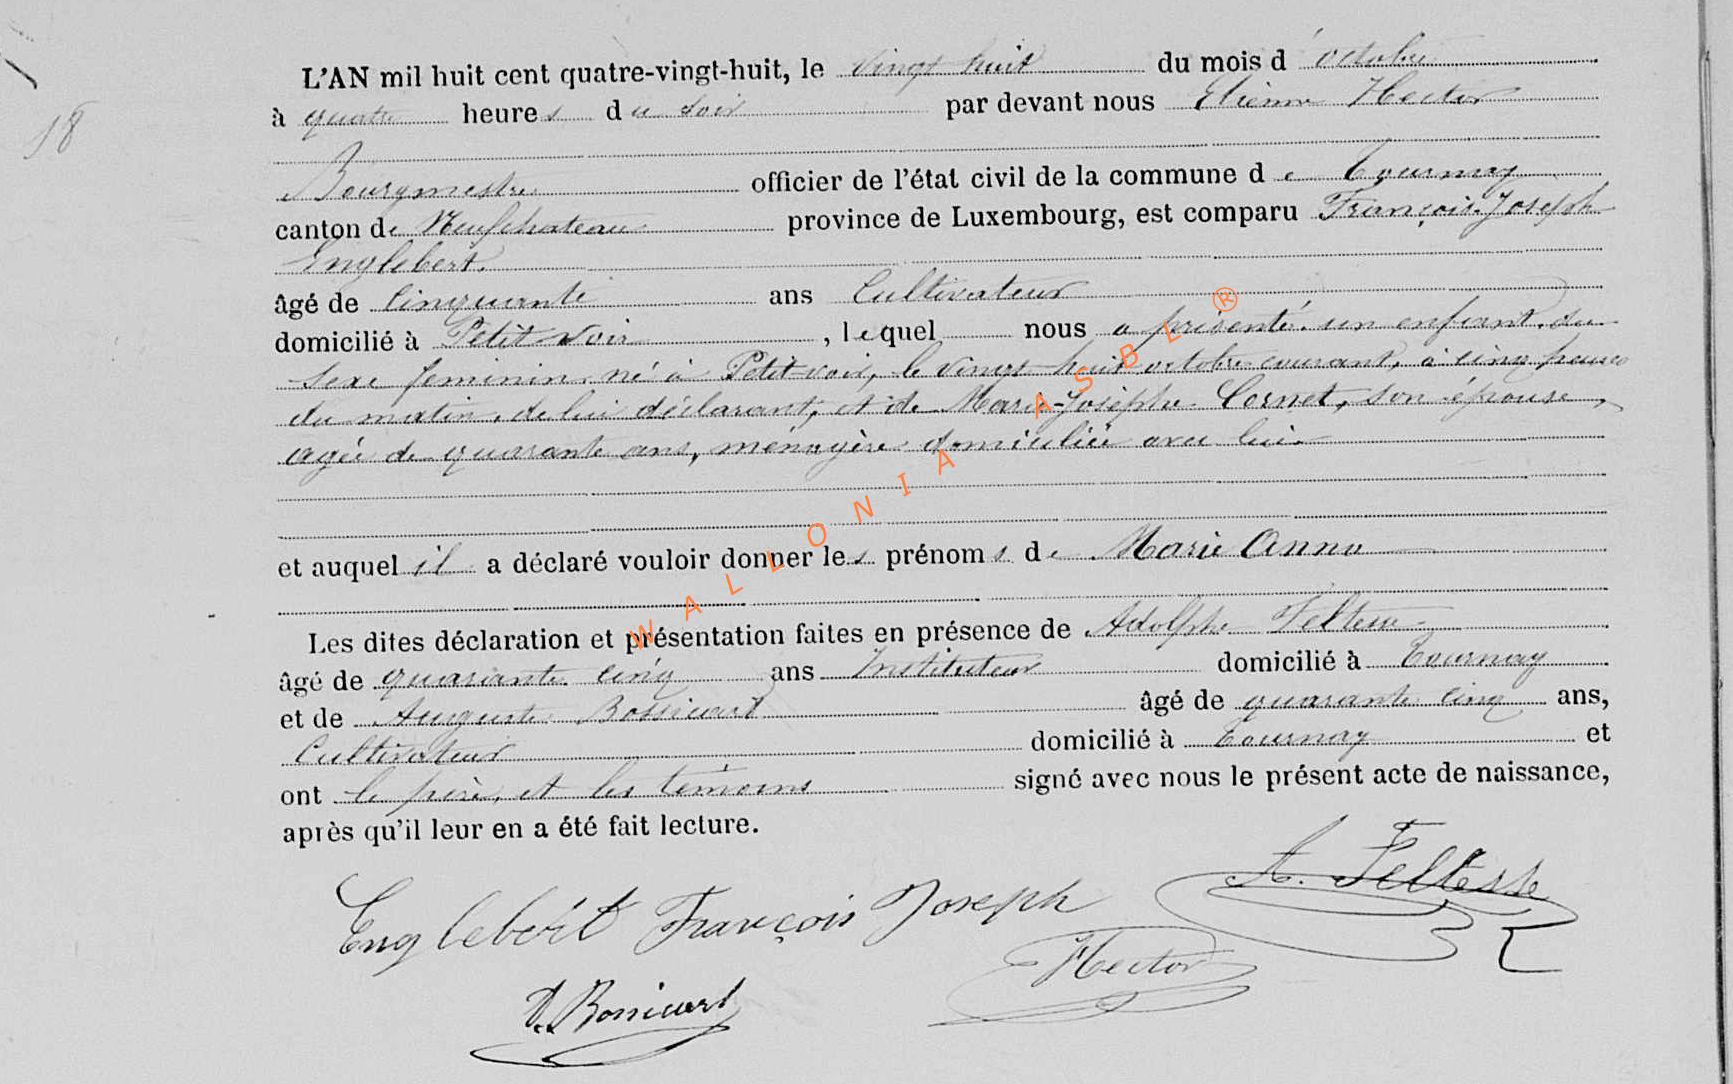 18
L'AN mil huit cent quatre-vingt-huit, le vingt huit du mois d'octobre
à quatre heures du soir par devant nous Etienne Hector
Bourgmestre officier de l'état civil de la commune de Tournay
canton de Neufchateau province de Luxembourg, est comparu François-Joseph
Englebert.
âgé de cinquante ans Cultivateur
domicilié à Petit voir, lequel nous a présenté un enfant du
sexe feminin né à Petit-voir, le vingt huit octobre courant, à cinq heures
du matin, de lui déclarant, et de Marie-Josèphe Cornet, son épouse,
agée de quarante ans, ménagère domiciliée avec lui
et auquel il a déclaré vouloir donner les prénoms de Marie Anne
Les dites déclaration et présentation faites en présence de Adolphe
âgé de quarante cinq ans Instituteur domicilié à Tournay
et de Auguste Bossicart âgé de quarante cinq ans,
Cultivateur domicilié à Tournay et
ont le père, et les témoins signé avec nous le présent acte de naissance,
après qu'il leur en a été fait lecture.
A. Feltesse
Englebert François Joseph
Hector
Bossicart
WALLONIA ASBL ®